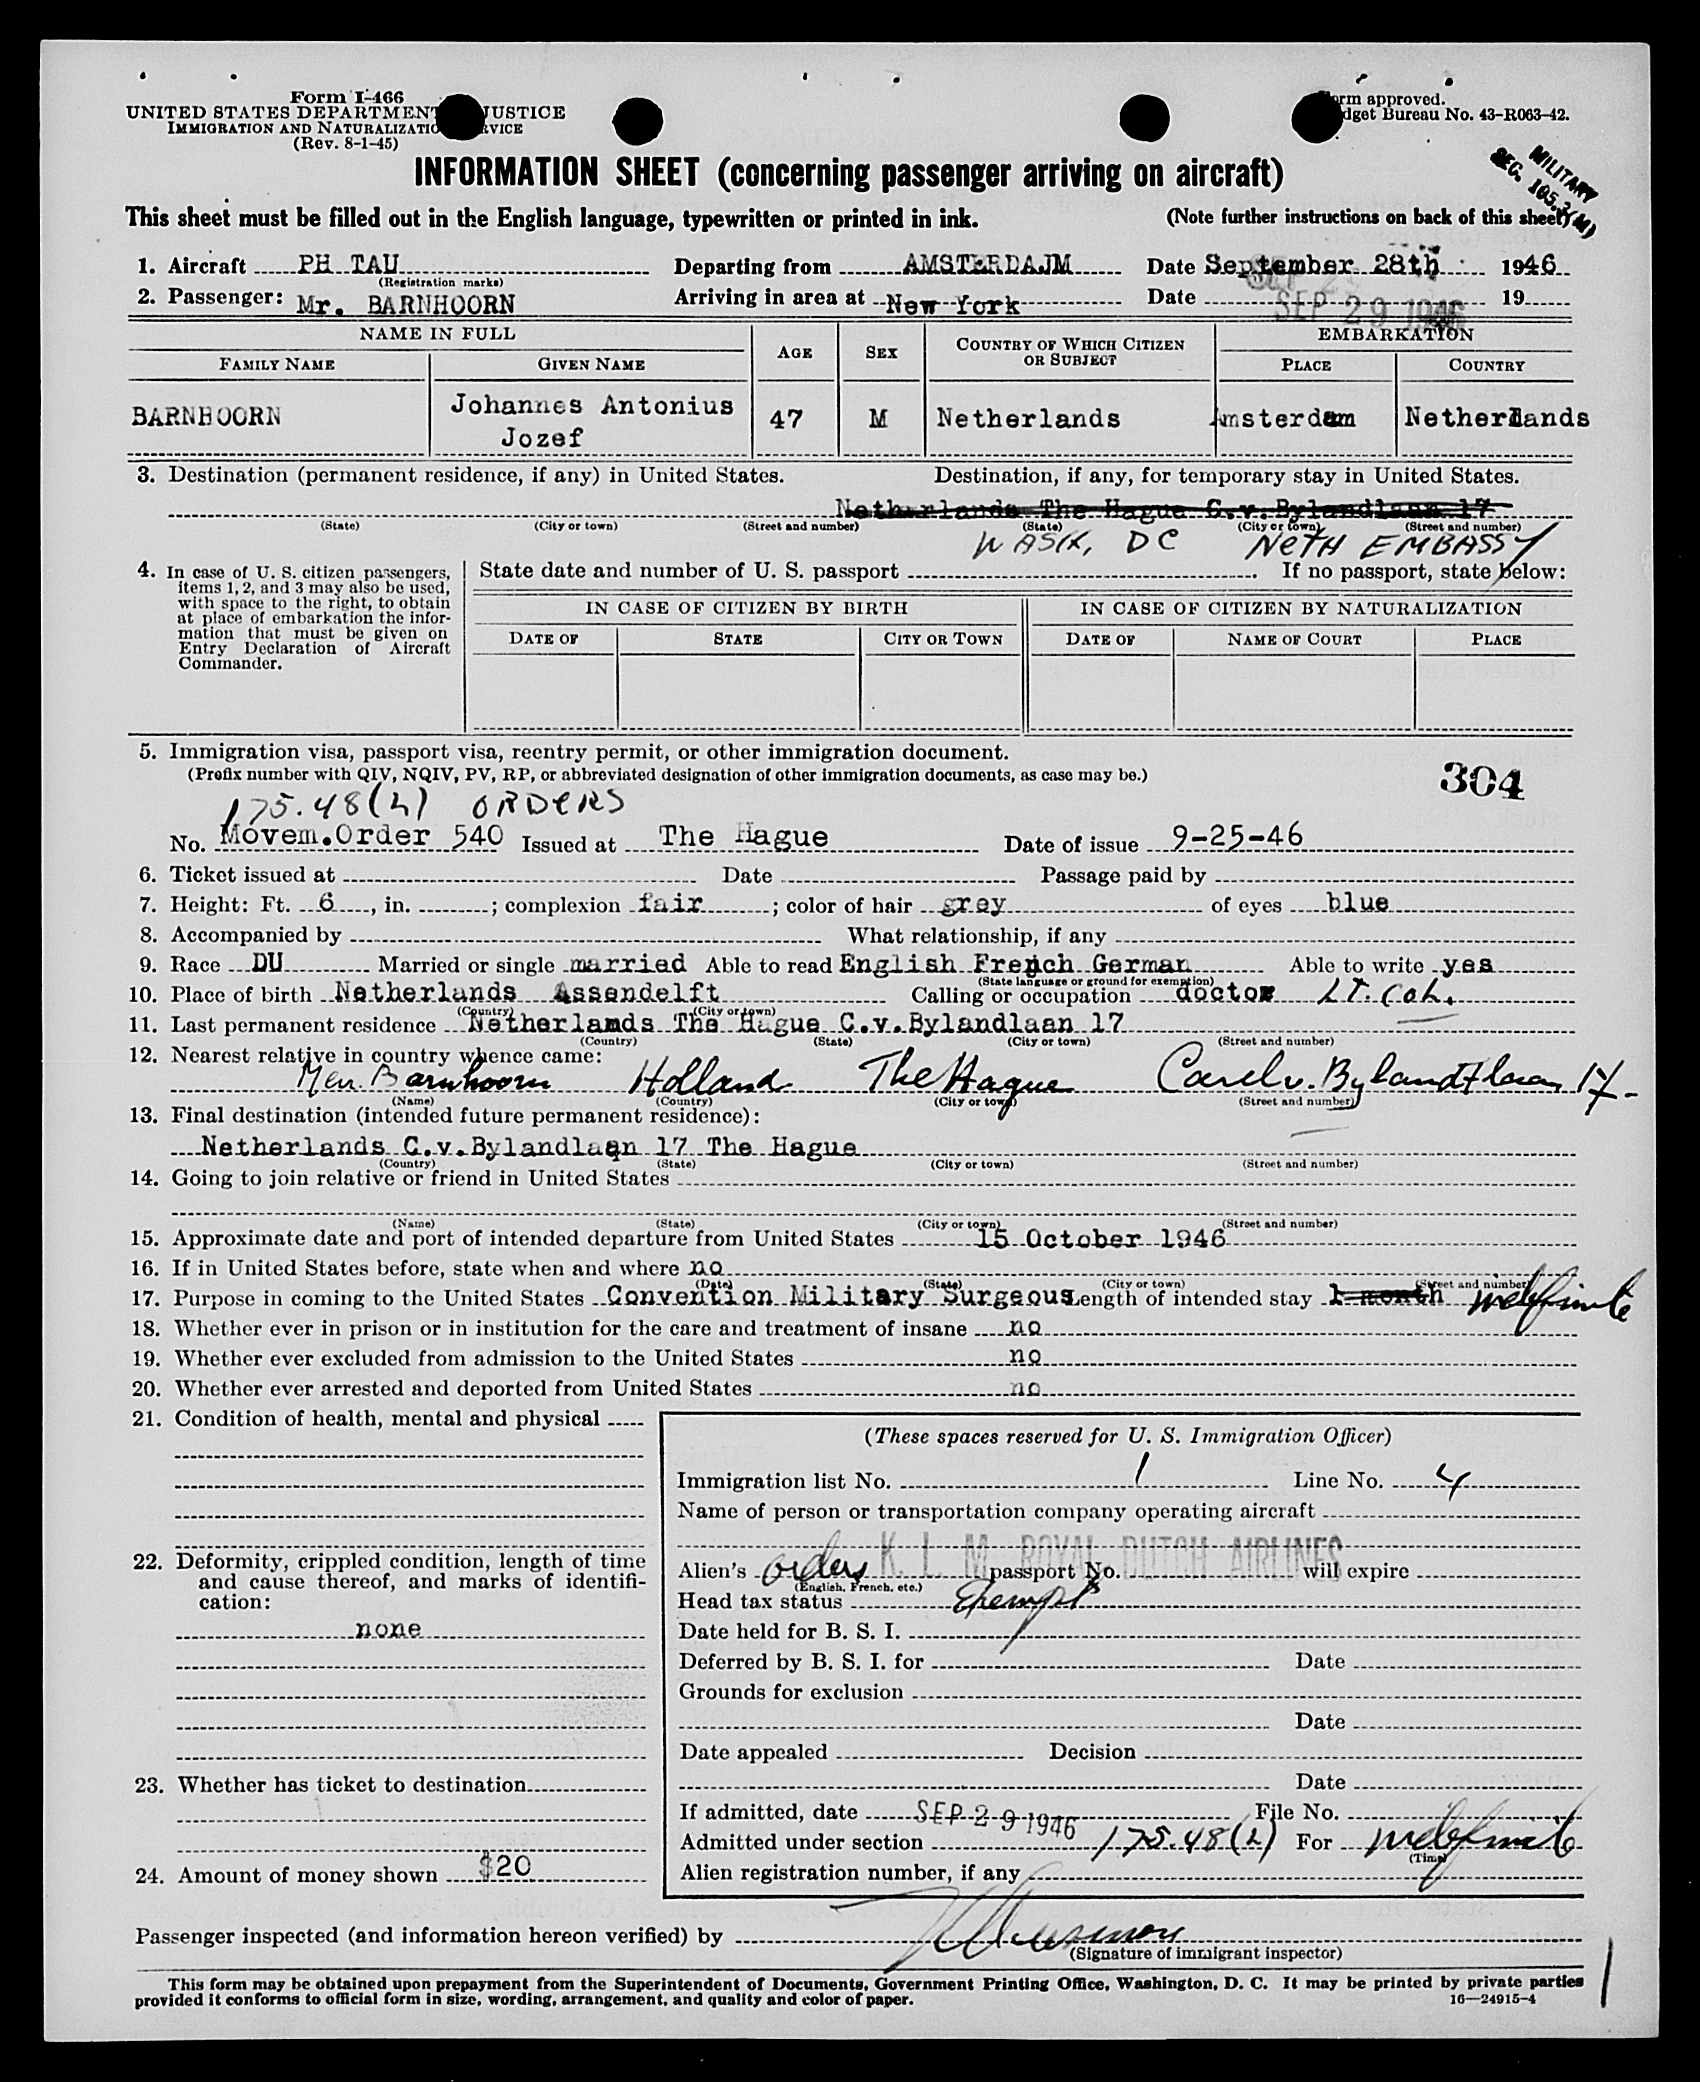 Form I-466
UNITED STATES DEPARTMENT JUSTICE
IMMIGRATION AND NATURALIZATIO VICE
(Rev. 8-1-45)
rm approved.
dget Bureau No. 43-R063-42.
MILITARY
SEC. 105.3(M)
INFORMATION SHEET (concerning passenger arriving on aircraft)
This sheet must be filled out in the English language, typewritten or printed in ink. (Note further instructions on back of this sheet)
1. Aircraft PH TAU Departing from AMSTERDAJM Date September 28th 1946
(Registration marks)
2. Passenger: Mr. BARNHOORN Arriving in area at New York Date SEP 29 1946 19
NAME IN FULL AGE SEX COUNTRY OF WHICH CITIZEN OR SUBJECT EMBARKATION
FAMILY NAME GIVEN NAME PLACE COUNTRY
BARNHOORN Johannes Antonius Jozef 47 M Netherlands Amsterdam Netherlands
3. Destination (permanent residence, if any) in United States. Destination, if any, for temporary stay in United States.
Netherlands The Hague C.v.Bylandlaan 17
(State) (City or town) (Street and number) (State) (City or town) (Street and number)
WASH, DC NETH EMBASSY
4. In case of U. S. citizen passengers, items 1, 2, and 3 may also be used, with space to the right, to obtain at place of embarkation the information that must be given on Entry Declaration of Aircraft Commander.
State date and number of U. S. passport . If no passport, state below:
IN CASE OF CITIZEN BY BIRTH IN CASE OF CITIZEN BY NATURALIZATION
DATE OF STATE CITY OR TOWN DATE OF NAME OF COURT PLACE
5. Immigration visa, passport visa, reentry permit, or other immigration document.
(Prefix number with QIV, NQIV, PV, RP, or abbreviated designation of other immigration documents, as case may be.)
304
175.48(2) ORDERS
No. Movem.Order 540 Issued at The Hague Date of issue 9-25-46
6. Ticket issued at Date Passage paid by
7. Height: Ft. 6, in. ; complexion fair ; color of hair grey of eyes blue
8. Accompanied by What relationship, if any
9. Race DU Married or single married Able to read English French German Able to write yes
(State language or ground for exemption)
10. Place of birth Netherlands Assendelft Calling or occupation doctor LT. COL.
(Country) (City or town)
11. Last permanent residence Netherlands The Hague C.v.Bylandlaan 17
(Country) (State) (City or town) (Street and number)
12. Nearest relative in country whence came:
Mevr. Barnhoorn Holland The Hague Carel v. Bylandtlaan 17-
(Name) (Country) (City or town) (Street and number)
13. Final destination (intended future permanent residence):
Netherlands C.v.Bylandlaan 17 The Hague
(Country) (State) (City or town) (Street and number)
14. Going to join relative or friend in United States
(Name) (State) (City or town) (Street and number)
15. Approximate date and port of intended departure from United States 15 October 1946
16. If in United States before, state when and where no
(Date) (State) (City or town) (Street and number)
17. Purpose in coming to the United States Convention Military Surgeous Length of intended stay 1 month indefinite
18. Whether ever in prison or in institution for the care and treatment of insane no
19. Whether ever excluded from admission to the United States no
20. Whether ever arrested and deported from United States no
21. Condition of health, mental and physical
22. Deformity, crippled condition, length of time and cause thereof, and marks of identification:
none
23. Whether has ticket to destination
24. Amount of money shown $20
(These spaces reserved for U. S. Immigration Officer)
Immigration list No. 1 Line No. 4
Name of person or transportation company operating aircraft
K. L. M. ROYAL DUTCH AIRLINES
Alien's orders passport No. will expire
(English, French, etc.)
Head tax status Exempt
Date held for B. S. I.
Deferred by B. S. I. for Date
Grounds for exclusion
Date
Date appealed Decision
Date
If admitted, date SEP 29 1946 File No.
Admitted under section 175.48(2) For indefinite
(Time)
Alien registration number, if any
Passenger inspected (and information hereon verified) by
(Signature of immigrant inspector)
This form may be obtained upon prepayment from the Superintendent of Documents, Government Printing Office, Washington, D. C. It may be printed by private parties
provided it conforms to official form in size, wording, arrangement, and quality and color of paper. 16—24915-4